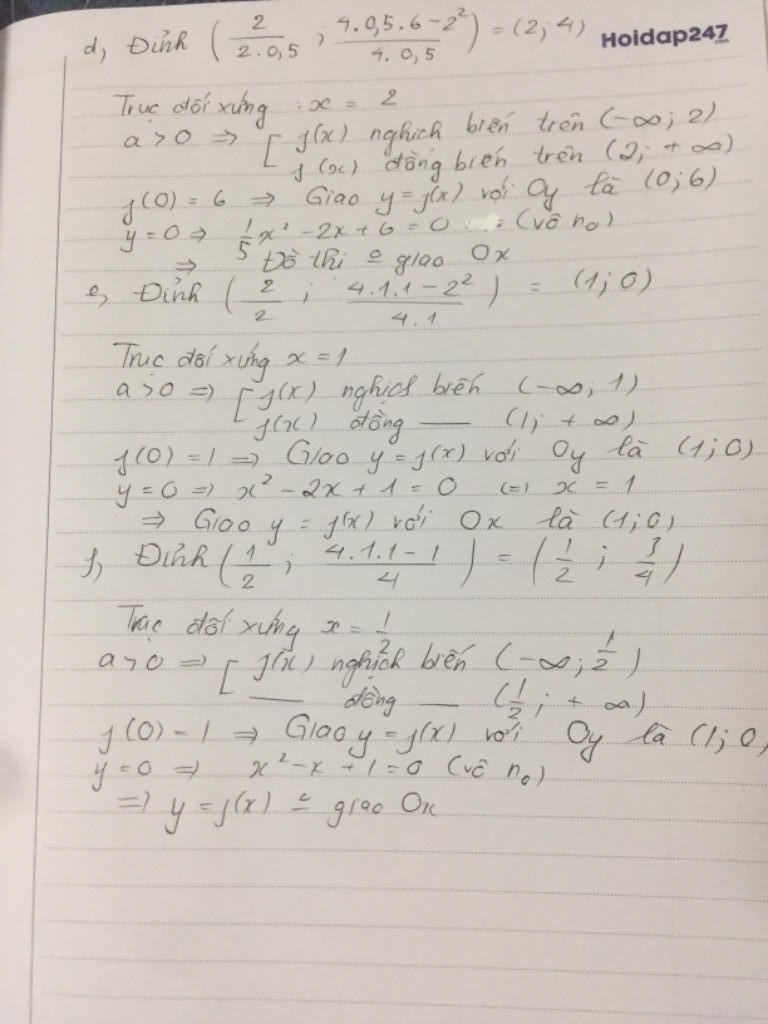 d, Đỉnh ( 2/2.0,5 ; 4.0,5.6-2²/4.0,5 ) = (2; 4)
Hoidap247.com
Trục đối xứng : x = 2
a > 0 ⇒ [ f(x) nghịch biến trên (-∞; 2)
f(x) đồng biến trên (2; +∞)
f(0) = 6 ⇒ Giao y = f(x) với Oy là (0; 6)
y = 0 ⇒ 1/5 x² - 2x + 6 = 0 (vô n₀)
⇒ Đồ thị giao Ox
e, Đỉnh ( 2/2 ; 4.1.1-2²/4.1 ) = (1; 0)
Trục đối xứng x = 1
a > 0 ⇒ [ f(x) nghịch biến (-∞; 1)
f(x) đồng — (1; +∞)
f(0) = 1 ⇒ Giao y = f(x) với Oy là (1; 0)
y = 0 ⇒ x² - 2x + 1 = 0 (=) x = 1
⇒ Giao y = f(x) với Ox là (1; 0)
f, Đỉnh ( 1/2 ; 4.1.1-1/4 ) = ( 1/2 ; 3/4 )
Trục đối xứng x = 1/2
a > 0 ⇒ [ f(x) nghịch biến (-∞; 1/2)
— đồng — (1/2; +∞)
f(0) = 1 ⇒ Giao y = f(x) với Oy là (1; 0)
y = 0 ⇒ x² - x + 1 = 0 (vô n₀)
⇒ y = f(x) giao Ox